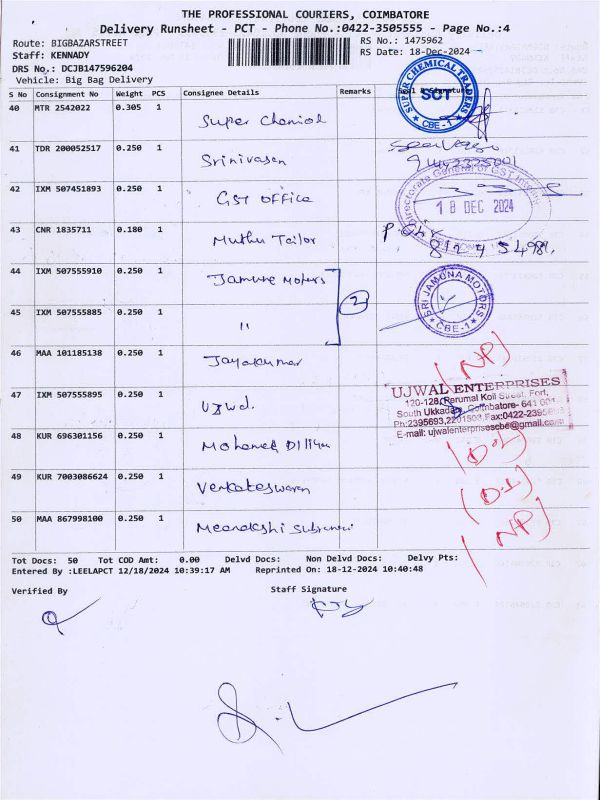 THE PROFESSIONAL COURIERS, COIMBATORE
Delivery Runsheet - PCT - Phone No.:0422-3505555 - Page No.:4
Route: BIGBAZARSTREET RS No.: 1475962
Staff: KENNADY RS Date: 18-Dec-2024
DRS No.: DCJB147596204
Vehicle: Big Bag Delivery
S No Consignment No Weight PCS Consignee Details Remarks
40 MTR 2542022 0.305 1 Super Chemical
SUPER CHEMICAL TRADERS SCT CBE-1
41 TDR 200052517 0.250 1 Srinivasan
42 IXM 507451893 0.250 1 GST OFFICE
Directorate General of GST
18 DEC 2024
43 CNR 1835711 0.180 1 Muthu Tailor
44 IXM 507555910 0.250 1 Jamuna Motors
2
SRI JAMUNA MOTORS CBE-1
45 IXM 507555885 0.250 1 "
46 MAA 101185138 0.250 1 Jayakumar (NP)
47 IXM 507555895 0.250 1 Ujwal.
UJWAL ENTERPRISES
120-128, Perumal Koil Street, Fort,
South Ukkadam, Coimbatore- 641 001
Ph:2395693, Fax:0422-
E-mail: ujwalenterprisescbe@gmail.com
48 KUR 696301156 0.250 1 Mohamed (D.L)
49 KUR 7003086624 0.250 1 Venkateswaran (D.L)
50 MAA 867998100 0.250 1 Meenakshi (NP)
Tot Docs: 50 Tot COD Amt: 0.00 Delvd Docs: Non Delvd Docs: Delvy Pts:
Entered By :LEELAPCT 12/18/2024 10:39:17 AM Reprinted On: 18-12-2024 10:40:48
Verified By Staff Signature